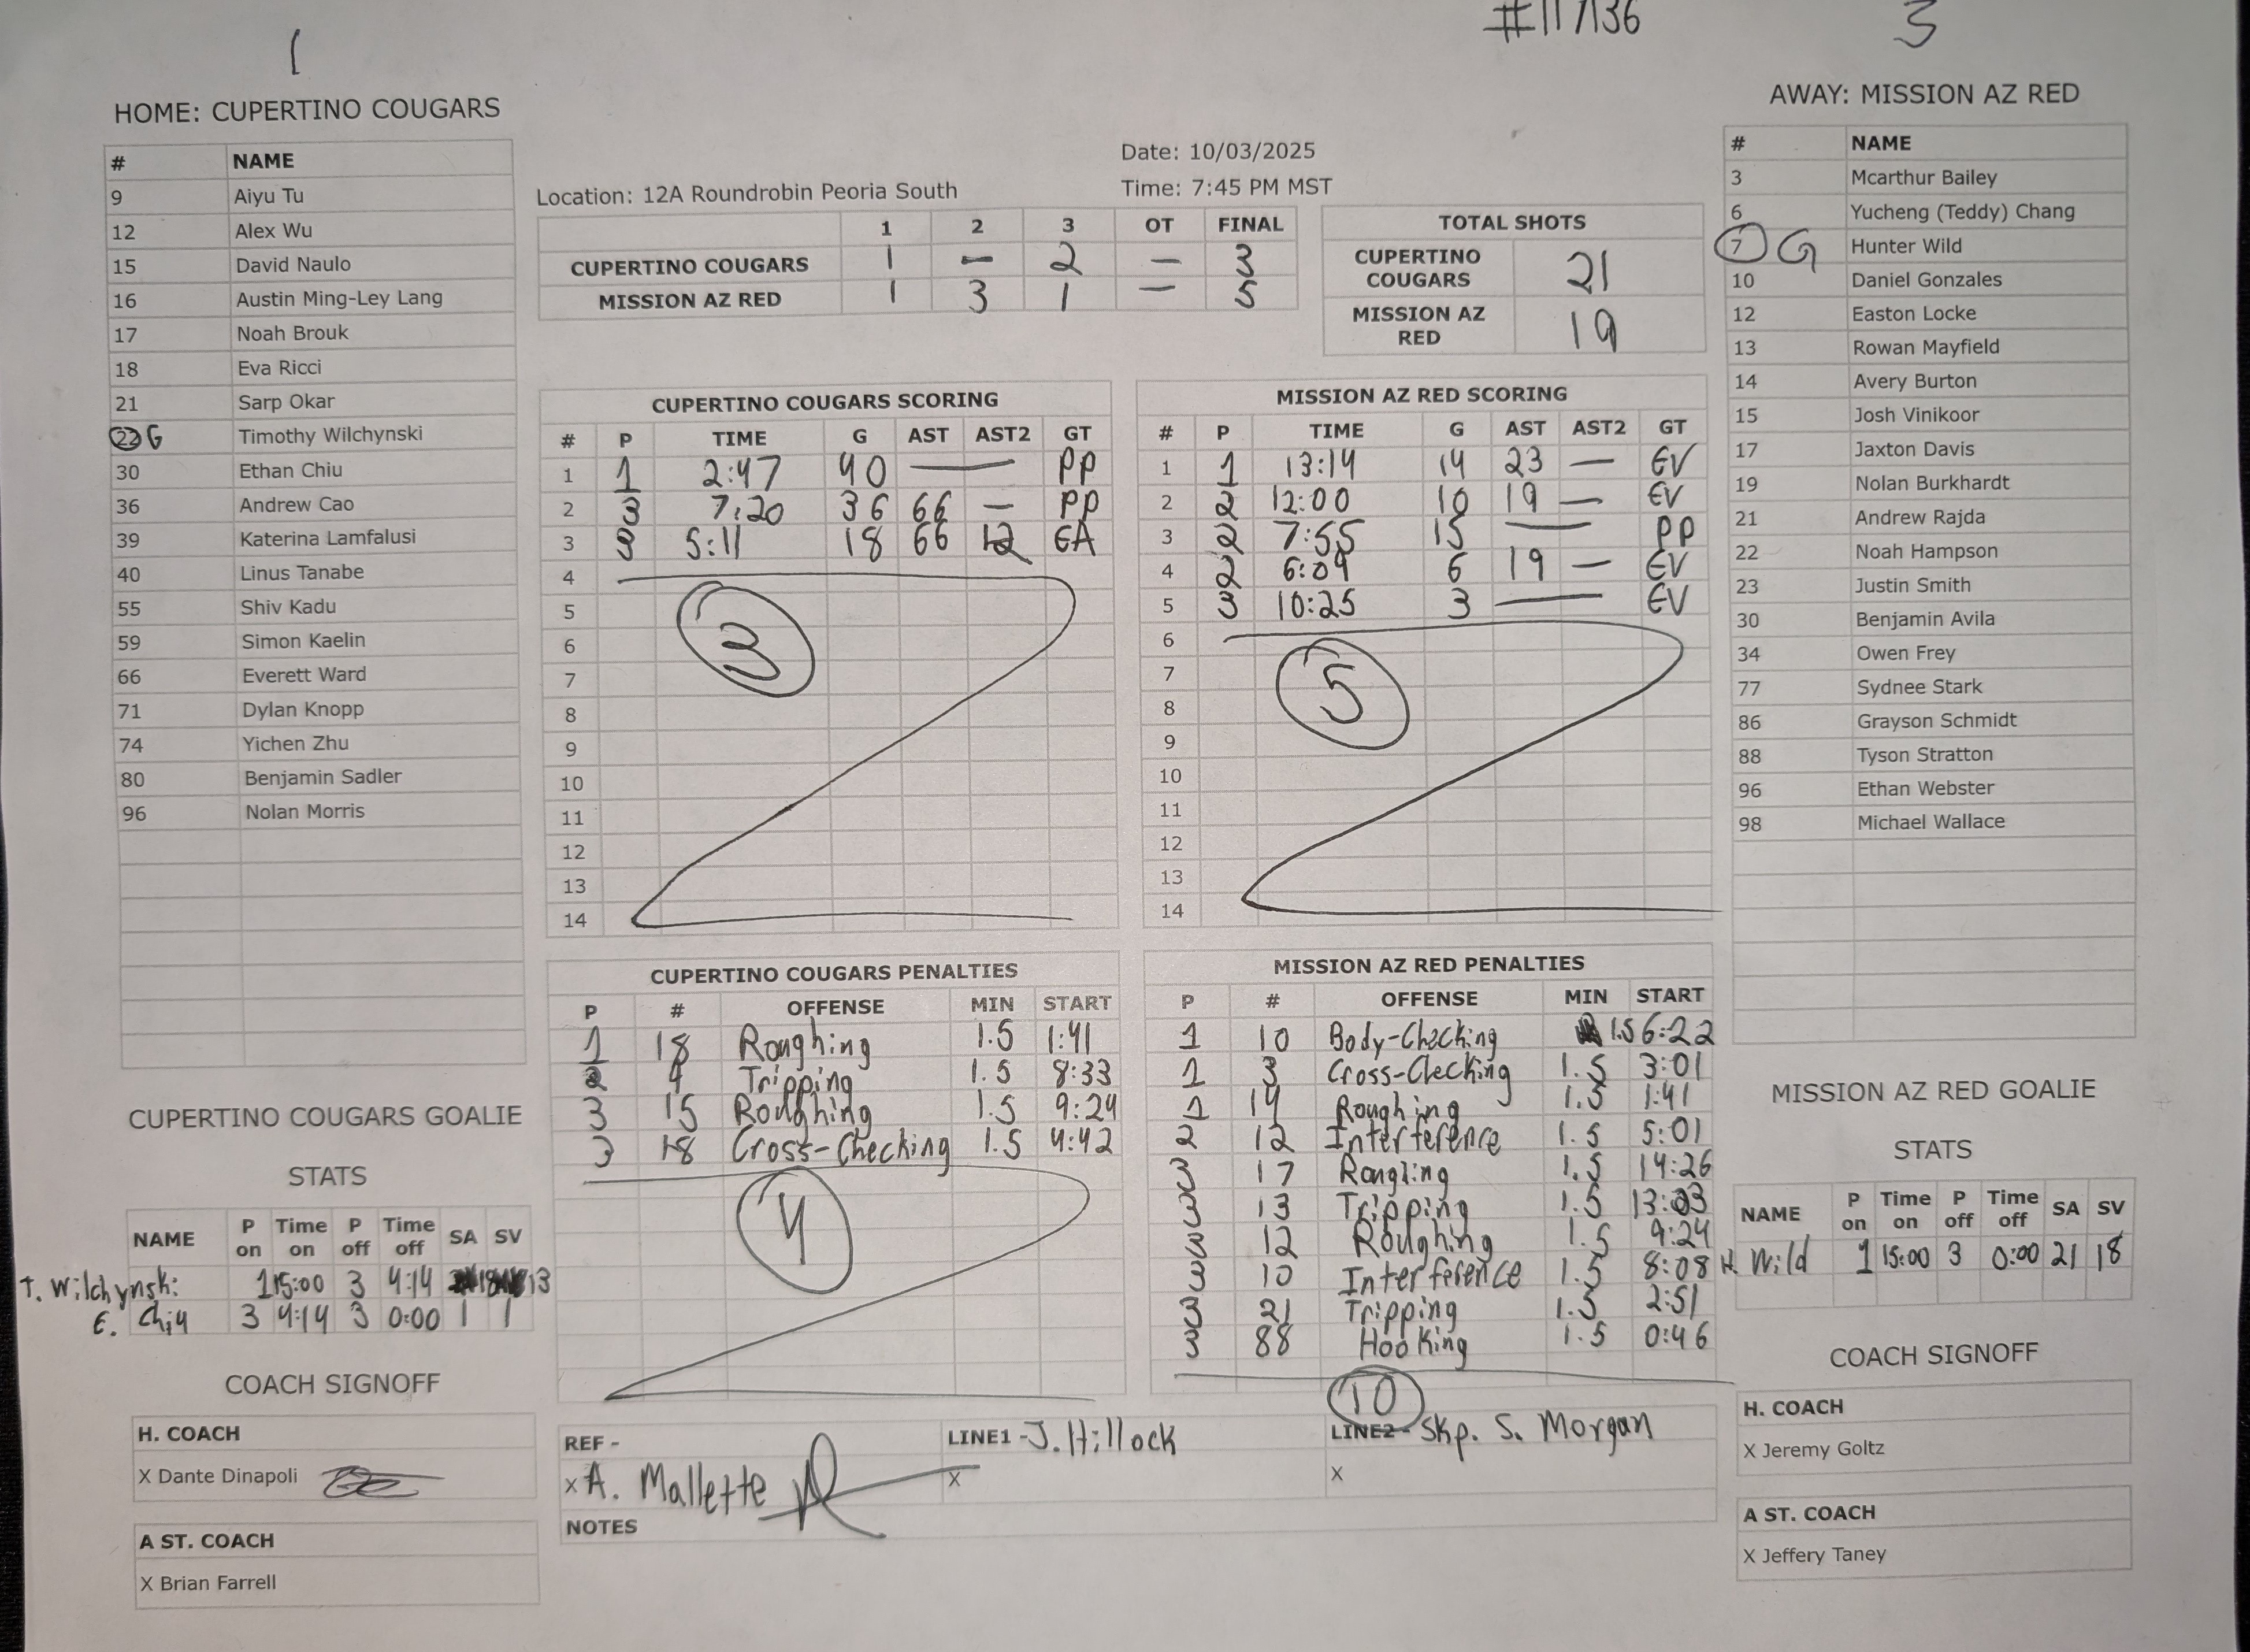 #117136
1
3
HOME: CUPERTINO COUGARS
# NAME
9 Aiyu Tu
12 Alex Wu
15 David Naulo
16 Austin Ming-Ley Lang
17 Noah Brouk
18 Eva Ricci
21 Sarp Okar
22 G Timothy Wilchynski
30 Ethan Chiu
36 Andrew Cao
39 Katerina Lamfalusi
40 Linus Tanabe
55 Shiv Kadu
59 Simon Kaelin
66 Everett Ward
71 Dylan Knopp
74 Yichen Zhu
80 Benjamin Sadler
96 Nolan Morris
CUPERTINO COUGARS GOALIE
STATS
NAME P on Time on P off Time off SA SV
T. Wilchynski 1 15:00 3 4:14 18 13
E. Chiu 3 4:14 3 0:00 1 1
COACH SIGNOFF
H. COACH
X Dante Dinapoli
A ST. COACH
X Brian Farrell
Location: 12A Roundrobin Peoria South
Date: 10/03/2025
Time: 7:45 PM MST
1 2 3 OT FINAL
CUPERTINO COUGARS 1 — 2 — 3
MISSION AZ RED 1 3 1 — 5
TOTAL SHOTS
CUPERTINO COUGARS 21
MISSION AZ RED 19
CUPERTINO COUGARS SCORING
# P TIME G AST AST2 GT
1 1 2:47 40 — PP
2 3 7:20 36 66 — PP
3 3 5:11 18 66 12 EA
4
5
6
7
8
9
10
11
12
13
14
3
MISSION AZ RED SCORING
# P TIME G AST AST2 GT
1 1 13:14 14 23 — EV
2 2 12:00 10 19 — EV
3 2 7:55 15 — PP
4 2 6:09 6 19 — EV
5 3 10:25 3 — EV
6
7
8
9
10
11
12
13
14
5
CUPERTINO COUGARS PENALTIES
P # OFFENSE MIN START
1 18 Roughing 1.5 1:41
2 9 Tripping 1.5 8:33
3 15 Roughing 1.5 9:24
3 18 Cross-Checking 1.5 4:42
4
MISSION AZ RED PENALTIES
P # OFFENSE MIN START
1 10 Body-Checking 1.5 6:22
1 3 Cross-Checking 1.5 3:01
1 14 Roughing 1.5 1:41
2 12 Interference 1.5 5:01
3 17 Roughing 1.5 14:26
3 13 Tripping 1.5 13:03
3 12 Roughing 1.5 9:24
3 10 Interference 1.5 8:08
3 21 Tripping 1.5 2:51
3 88 Hooking 1.5 0:46
10
REF -
X A. Mallette
LINE1 - J. Hillock
X
LINE2 - Skp. S. Morgan
X
NOTES
AWAY: MISSION AZ RED
# NAME
3 Mcarthur Bailey
6 Yucheng (Teddy) Chang
7 G Hunter Wild
10 Daniel Gonzales
12 Easton Locke
13 Rowan Mayfield
14 Avery Burton
15 Josh Vinikoor
17 Jaxton Davis
19 Nolan Burkhardt
21 Andrew Rajda
22 Noah Hampson
23 Justin Smith
30 Benjamin Avila
34 Owen Frey
77 Sydnee Stark
86 Grayson Schmidt
88 Tyson Stratton
96 Ethan Webster
98 Michael Wallace
MISSION AZ RED GOALIE
STATS
NAME P on Time on P off Time off SA SV
H. Wild 1 15:00 3 0:00 21 18
COACH SIGNOFF
H. COACH
X Jeremy Goltz
A ST. COACH
X Jeffery Taney